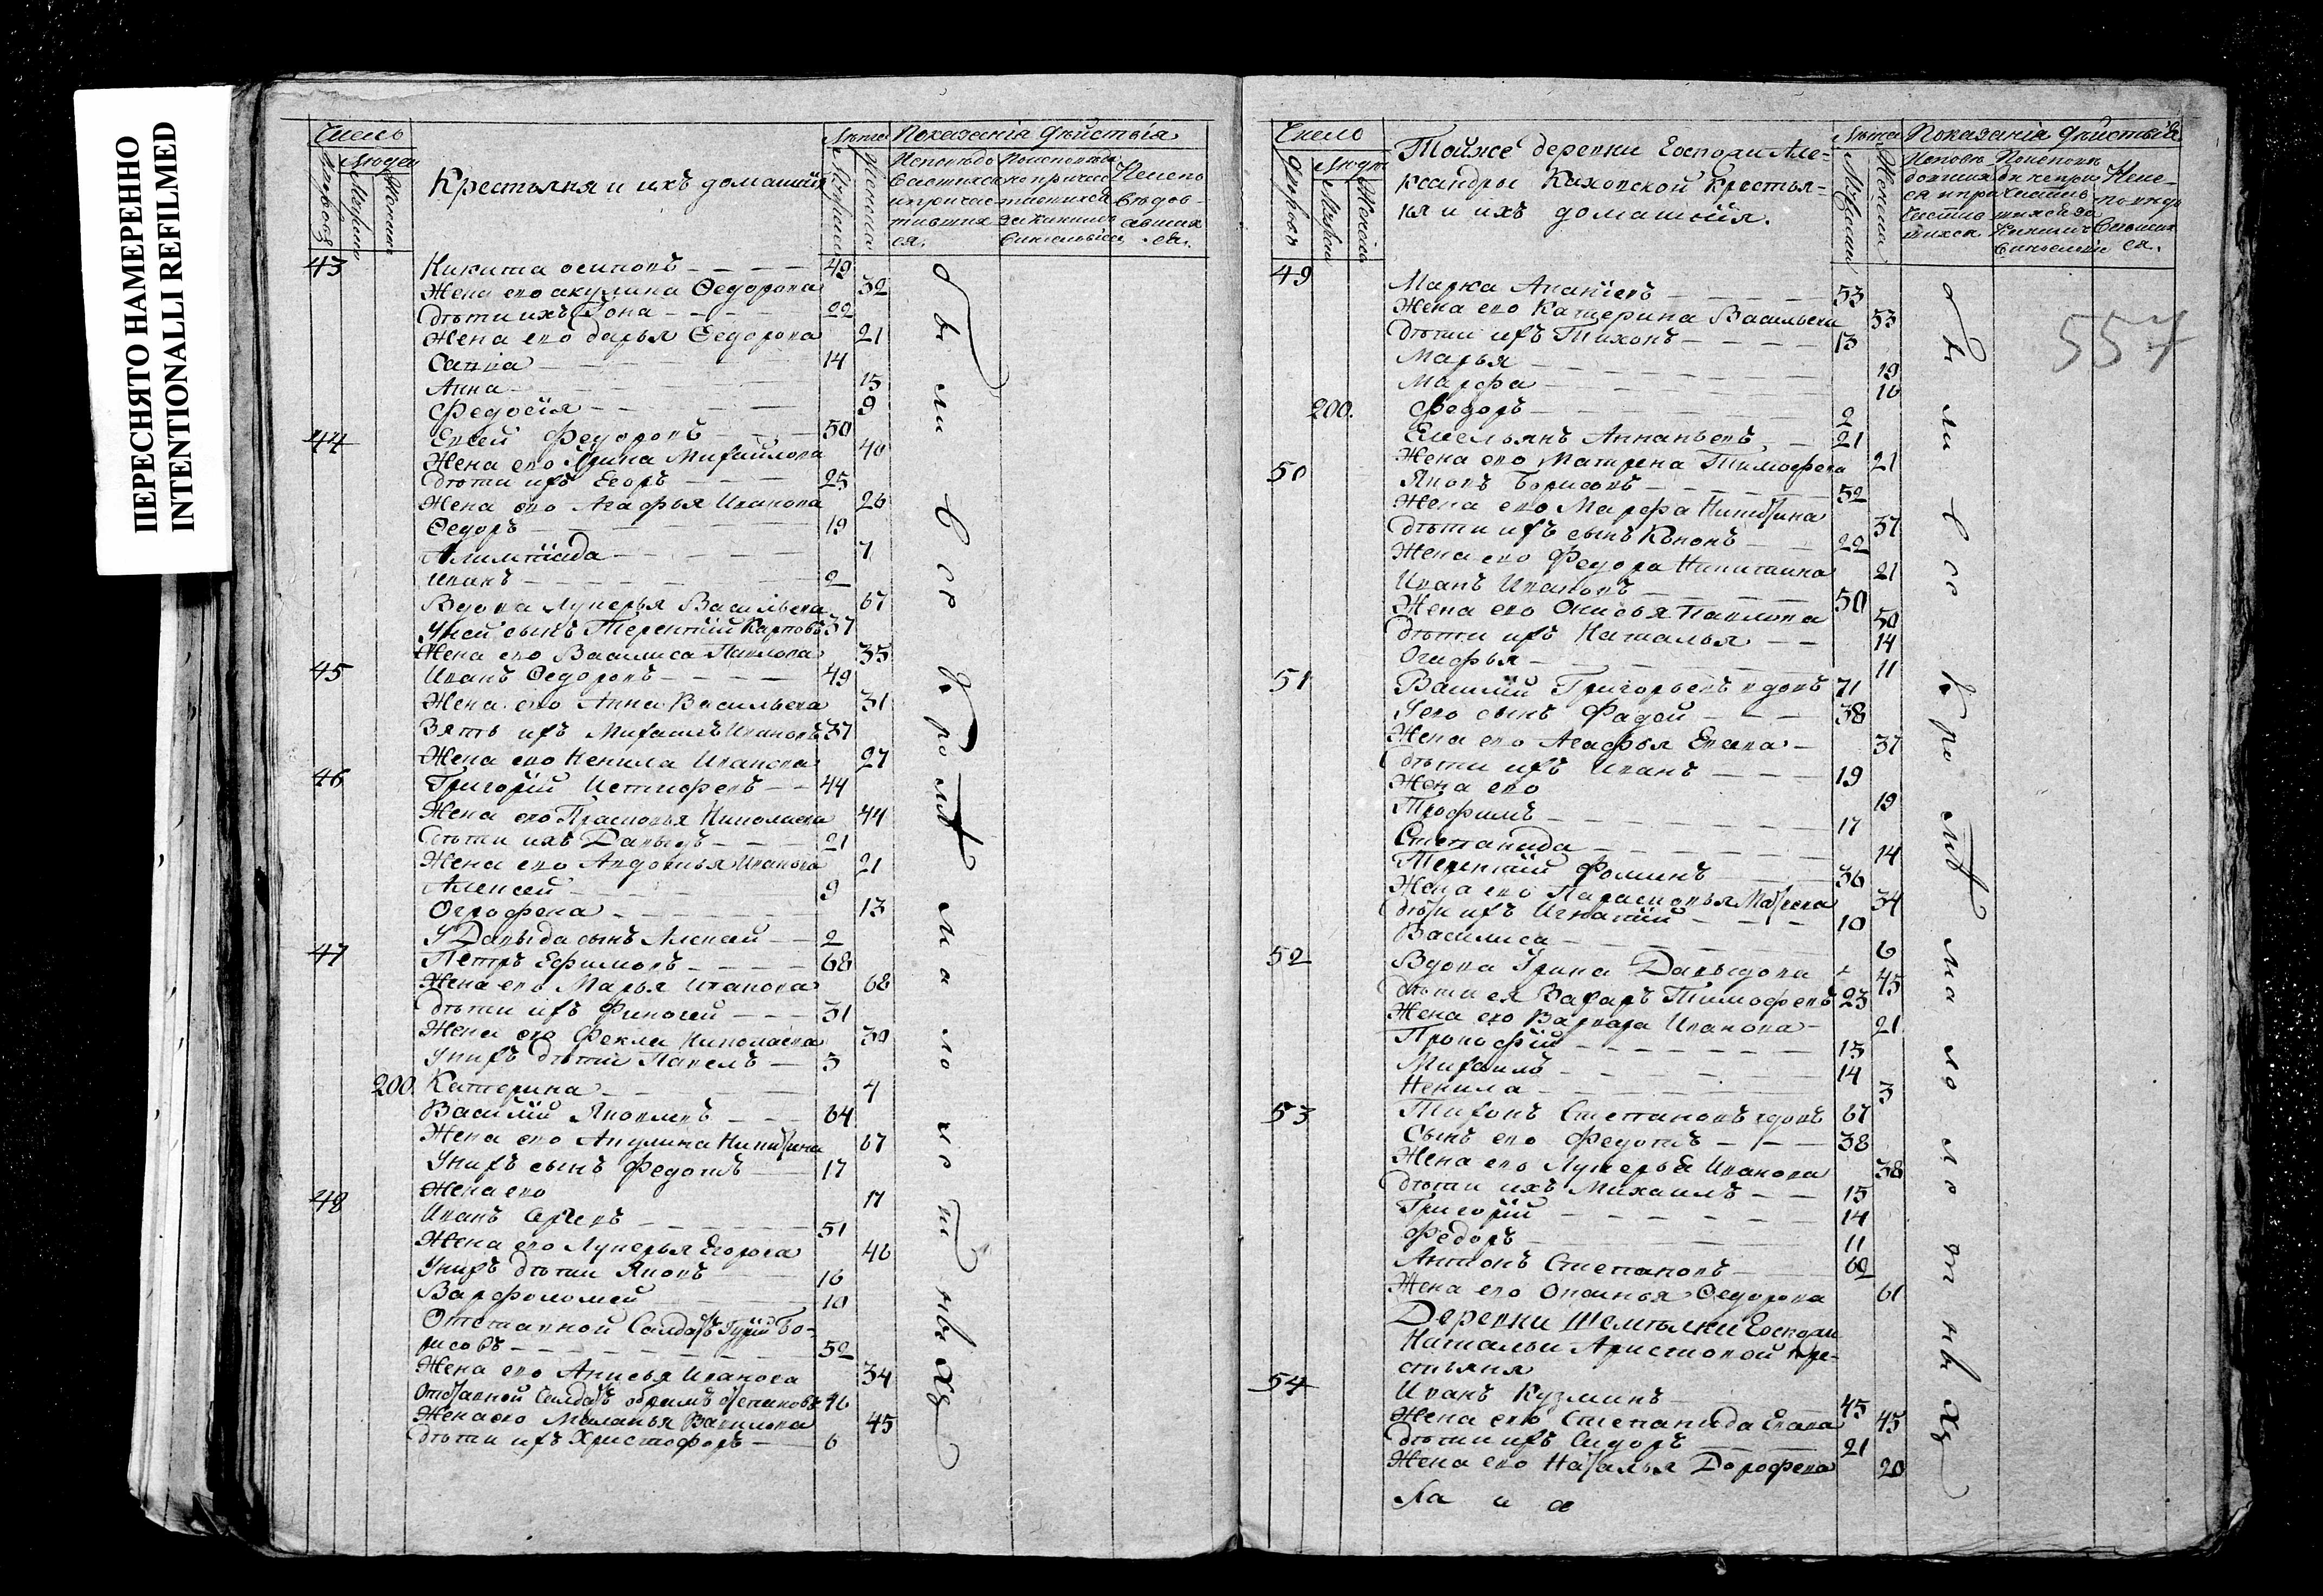 ПЕРЕСНЯТО НАМЕРЕННО
INTENTIONALLI REFILMED
Число
Людей
Крестьяня и ихъ домашнія
Лѣта
Показанія дѣйствія
43
Никита осиповъ 49
Жена его акулина Ѳедорова 32
дѣти ихъ Іона 22
Жена его дарья Ѳедорова 21
Савва 14
Анна 15
Федосія 9
44
Евсей Федоровъ 50
Жена его Ірина Михайлова 40
дѣти ихъ Егоръ 25
Жена его Агафья Иванова 26
Ѳедоръ 19
Алимпіада 7
Иванъ 2
Вдова Лукерья Васильева 67
У ней сынъ Терентій Карповъ 37
Жена его Василиса Павлова 35
45
Иванъ Ѳедоровъ 49
Жена его Анна Васильева 31
Зять ихъ Михаилъ Ивановъ 37
Жена его Ненила Иванова 27
46
Григорій Истифевъ 44
Жена его Прасковья Николаева 44
дѣти ихъ Давыдъ 21
Жена его Авдотья Иванова 21
Алексей 9
Огрофена 13
У Давыда сынъ Алексей 2
47
Петръ Ефимовъ 68
Жена его Марья Иванова 68
дѣти ихъ Финогей 31
Жена его Фекла Николаева 30
У нихъ дѣти Павелъ 5
200. Катерина 4
Василій Яковлевъ 64
Жена его Акулина Никитина 67
У нихъ сынъ Федотъ 17
Жена его 17
48
Иванъ Сергевъ 51
Жена его Лукерья Егорова 46
У нихъ дѣти Яковъ 16
Варфоломей 10
Отставной Салдатъ Гурій Бо-
рисовъ 52
Жена его Анисья Иванова 34
Отставной Салдатъ Степановъ 46
Жена его Маланья Вавилова 45
дѣти ихъ Христофоръ 6
бы ли все кромѣ малолотныхъ
Число
Людей
Тойже деревни Госпожи Але-
ксандры Каховской крестья-
ня и ихъ домашнія.
Лѣта
Показанія дѣйствія
557
49
Марка Ананіевъ 53
Жена его Катерина Васильева 53
дѣти ихъ Тихонъ 13
Марья 19
Марфа 16
200. Федоръ 2
Емельянъ Ананьевъ 21
Жена его Матрена Тимофева 21
50
Яковъ Борисовъ 52
Жена его Марфа Никитина 37
дѣти ихъ сынъ Кононъ 22
Жена его Федора Никитина 21
Иванъ Ивановъ 50
Жена его Анисья Павлова 50
дѣти ихъ Наталья 14
Огафья 11
51
Василій Григорьевъ вдовъ 71
У его сынъ Фадей 38
Жена его Агафья Евсева 37
дѣти ихъ Иванъ 19
Жена его 19
Трофимъ 17
Степанида 14
Терентій Фоминъ 36
Жена его Парасковья Матвева 34
дѣти ихъ Игнатій 10
Василиса 6
52
Вдова Ірина Давыдова 45
дѣти ея Захаръ Тимофевъ 23
Жена его Варвара Иванова 21
Прокофій 15
Михаилъ 14
Ненила 3
53
Тихонъ Степановъ вдовъ 67
Сынъ его Федотъ 38
Жена его Лукерья Иванова 38
дѣти ихъ Михаилъ 15
Григорій 14
Федоръ 11
Антонъ Степановъ 62
Жена его Ѳедорова 61
Деревни Шемтѣлки Госпожи
Натальи Аристовой кре-
стьяня
54
Иванъ Кузминъ 45
Жена его Степанида Евсева 45
дѣти ихъ Сидоръ 21
Жена его Наталья Дорофева 20
бы ли все кромѣ малолотныхъ